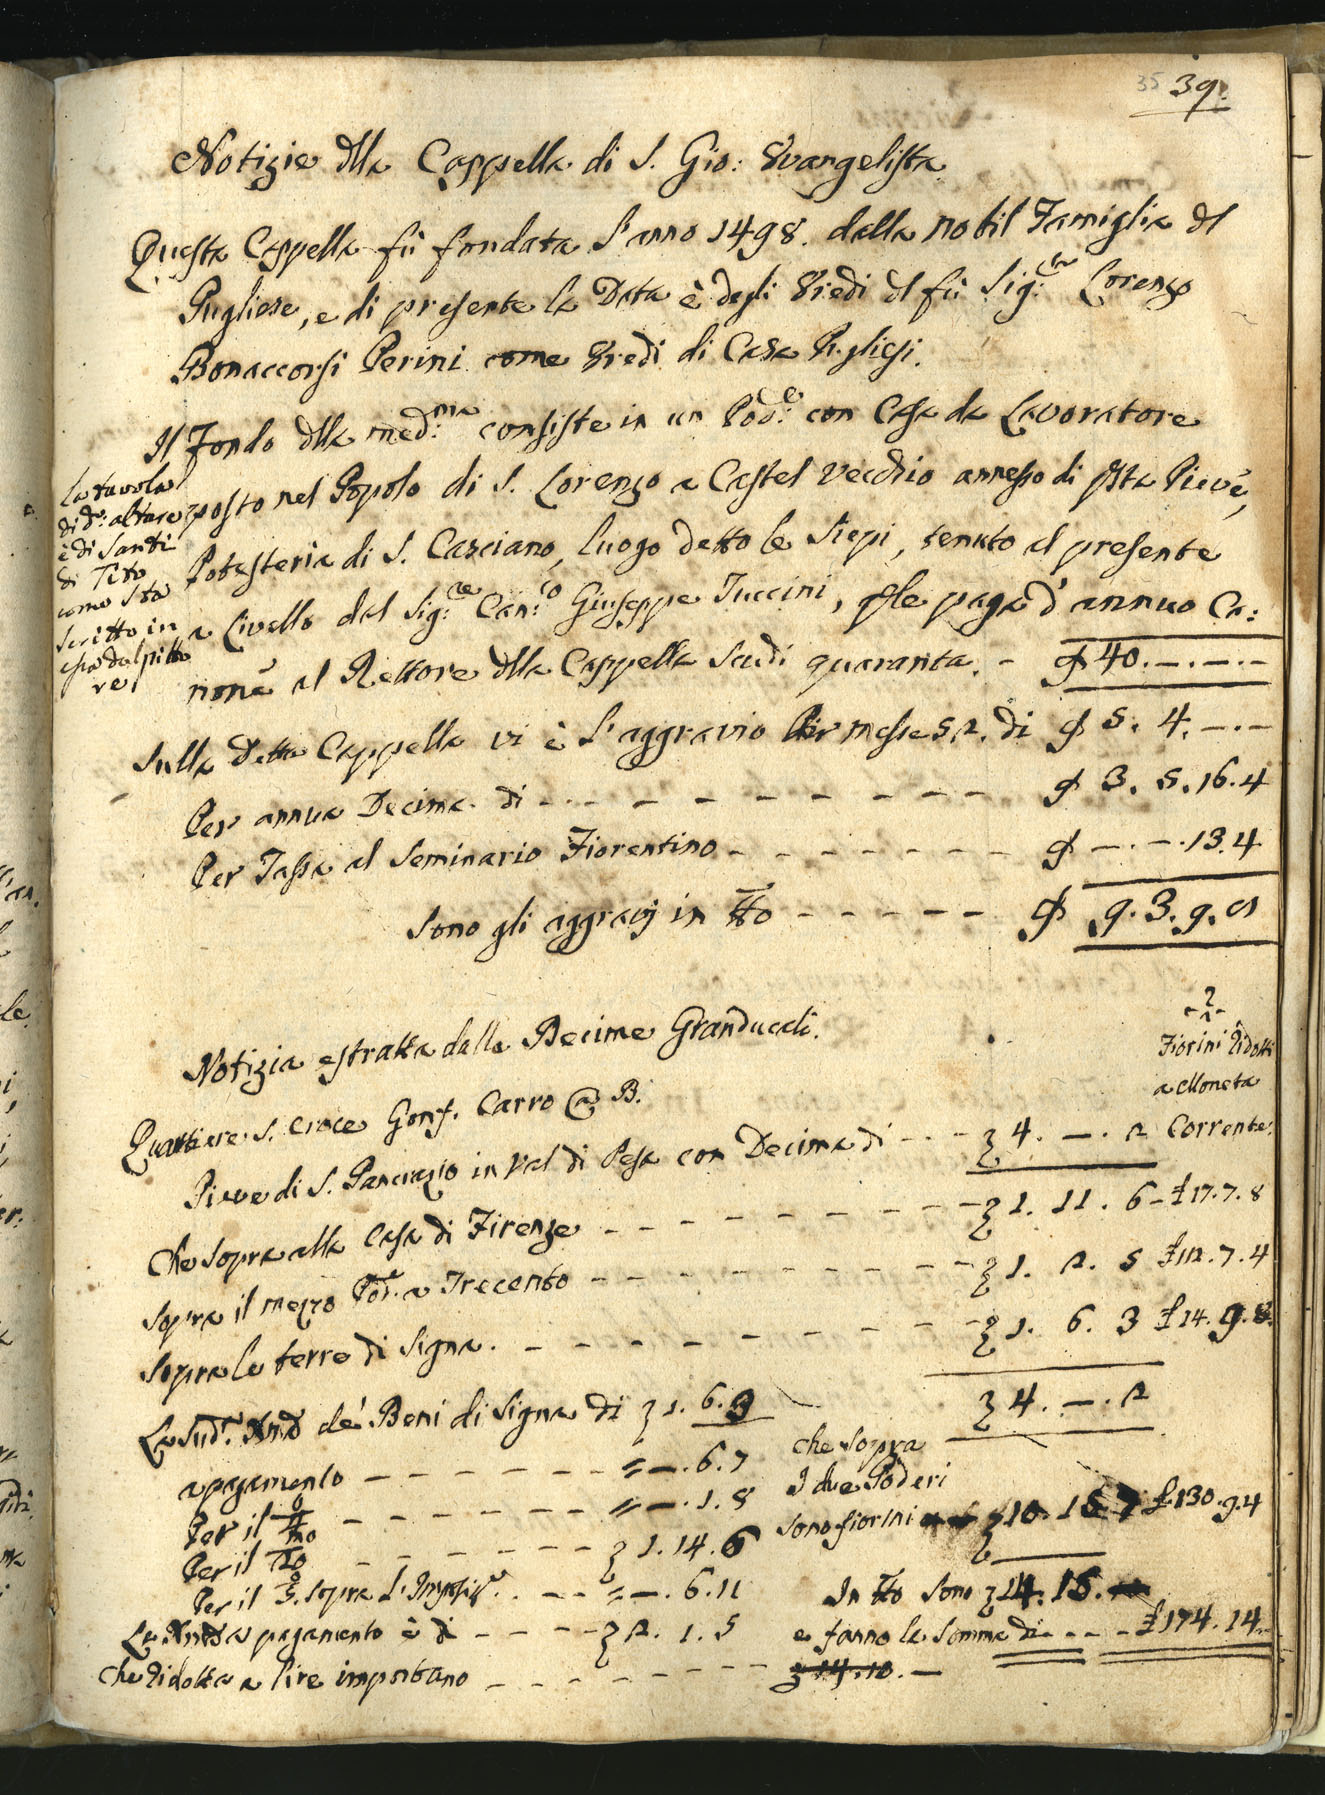 35 39.
Notizie dlla Cappella di S. Gio: Evangelista
Questa Cappella fù fondata l'anno 1498. dalla nobil Famiglia dl
Pugliese, e di presente la Data è degli Eredi dl fù Sig:re Lorenzo
Bonaccorsi Perini come Eredi di Casa Pugliesi.
Il Fondo dlla med:ma consiste in un Pod:e con Casa da Lavoratore
posto nel Popolo di S. Lorenzo a Castel Vecchio annesso di qsta Pieve,
Potesteria di S. Casciano, luogo detto le Siepi, tenuto al presente
a Livello dal Sig:re Can:co Giuseppe Tuccini, qle paga d'annuo Ca:
none al Rettore dlla Cappella Scudi quaranta. - 40.-.-.-
La tavola
di d.o altare
è di Santi
di Tito
come sta
scritto in
essa dal pitto
re
Sulla Detta Cappella vi è l'aggravio Per messe 52. di 5. 4. -.-
Per annua Decima di - - - - - - - - - 3. 5. 16. 4
Per Tassa al Seminario Fiorentino - - - - - - - -.-. 13. 4
Sono gli aggravj in tto - - - - - 9. 3. 9. 8
Notizia estratta dalle Decime Granducali.
Fiorini ridotti
a Moneta
Corrente.
Quartiere S. Croce Gonf. Carro a B.
Pieve di S. Pancrazio in Val di Pesa con Decima di - - - 4. -. 2
Che sopra alla Casa di Firenze - - - - - - - - - 1. 11. 6 - £ 17. 7. 8
Sopra il mezzo Pod.e a Trecento - - - - - - - - - 1. 2. 5 £ 112. 7. 4
Sopra le terre di Signa. - - - - - - - - - 1. 6. 3 £ 14. 9. 8.
4. -. 2
La Sud.a de' Beni di Signa di 1. 6. 3
a pagamento - - - - - - - -. 6. 7
Per il - - - - - - -. 1. 8
Per il - - - - - - 1. 14. 6
Per il sopra l'Imposiz.e - - -. 6. 11
La a pagamento è di - - - - 2. 1. 5
che ridotta a lire importano - - - - - - - 14. 10. -
che sopra
I due Poderi
sono fiorini 10. 15 7 £ 130. 9. 4
In tto Sono 14. 15.
e fanno la somma di - - - £ 174. 14.